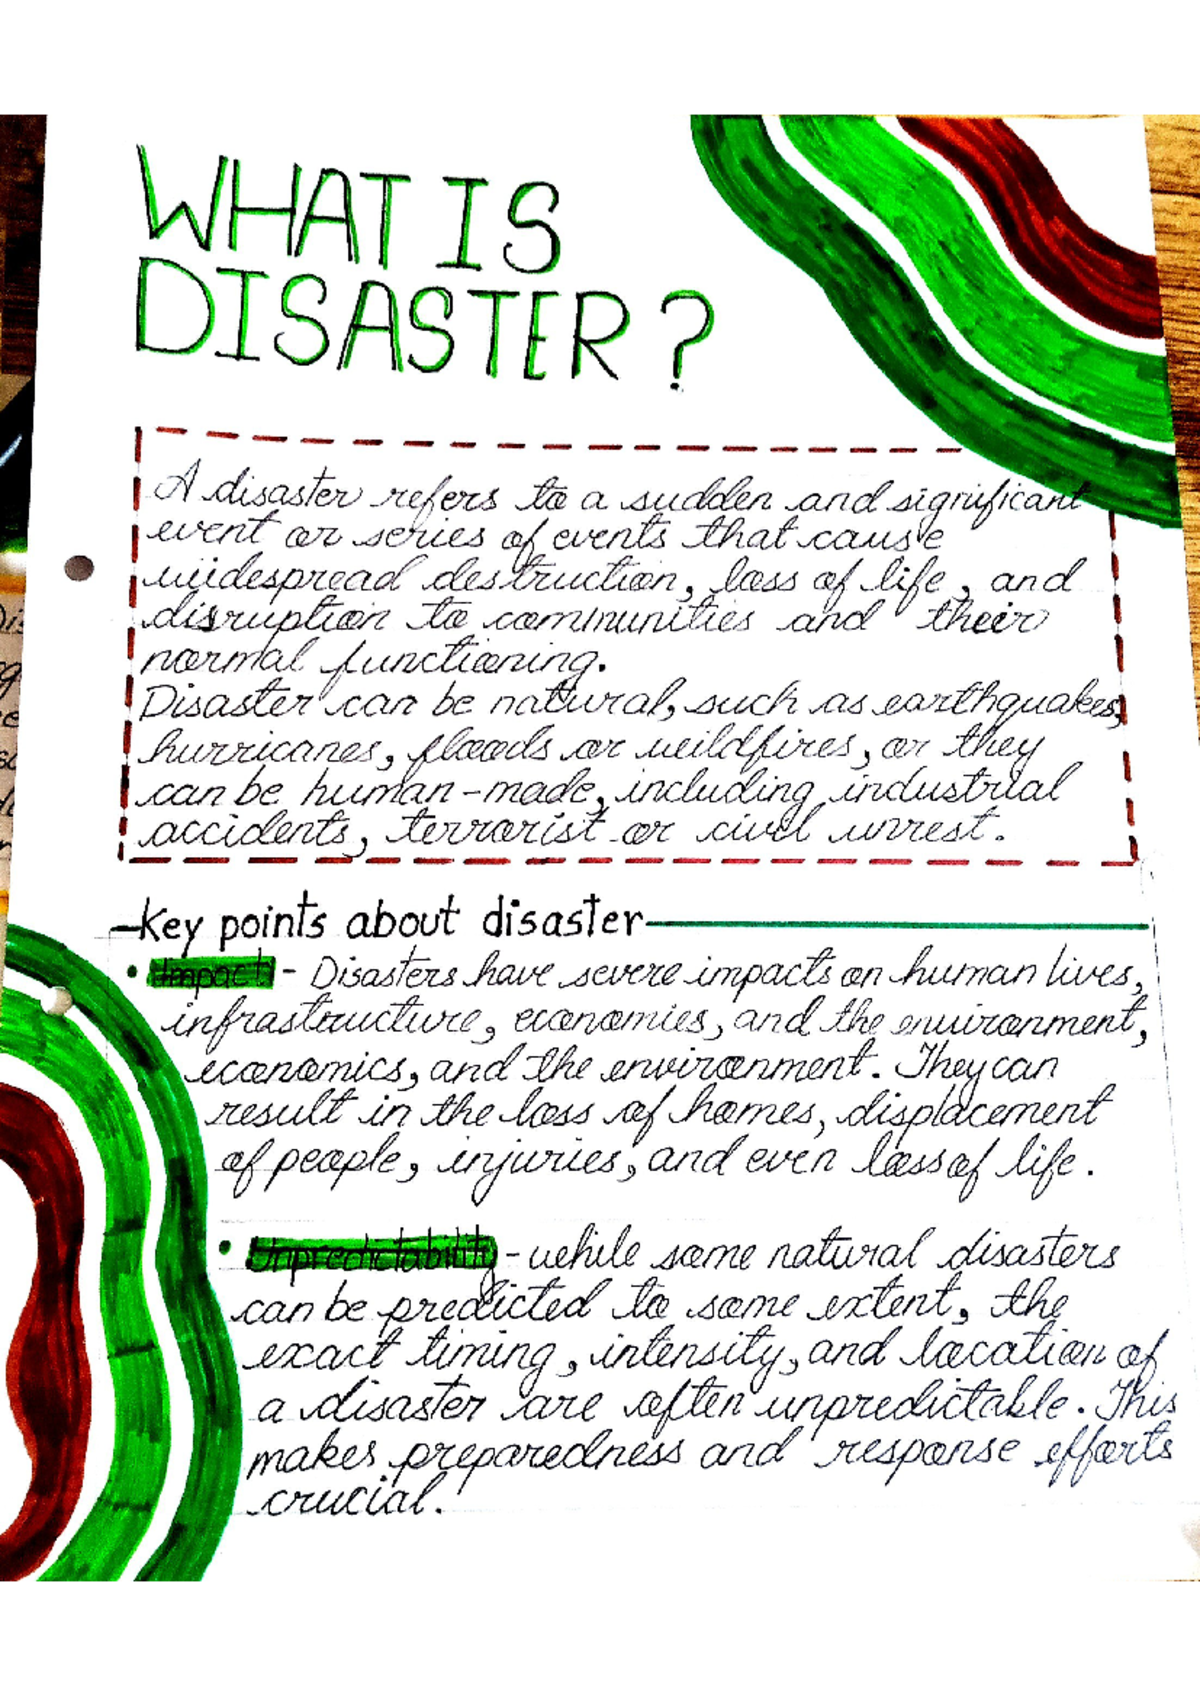 WHAT IS
DISASTER?
A disaster refers to a sudden and significant
event or series of events that cause
widespread destruction, loss of life, and
disruption to communities and their
normal functioning.
Disaster can be natural, such as earthquakes,
hurricanes, floods or wildfires, or they
can be human-made, including industrial
accidents, terrorist or civil unrest.
Key points about disaster
• Impact - Disasters have severe impacts on human lives,
infrastructure, economies, and the environment,
economics, and the environment. They can
result in the loss of homes, displacement
of people, injuries, and even loss of life.
• Unpredictability - while some natural disasters
can be predicted to some extent, the
exact timing, intensity, and location of
a disaster are often unpredictable. This
makes preparedness and response efforts
crucial.